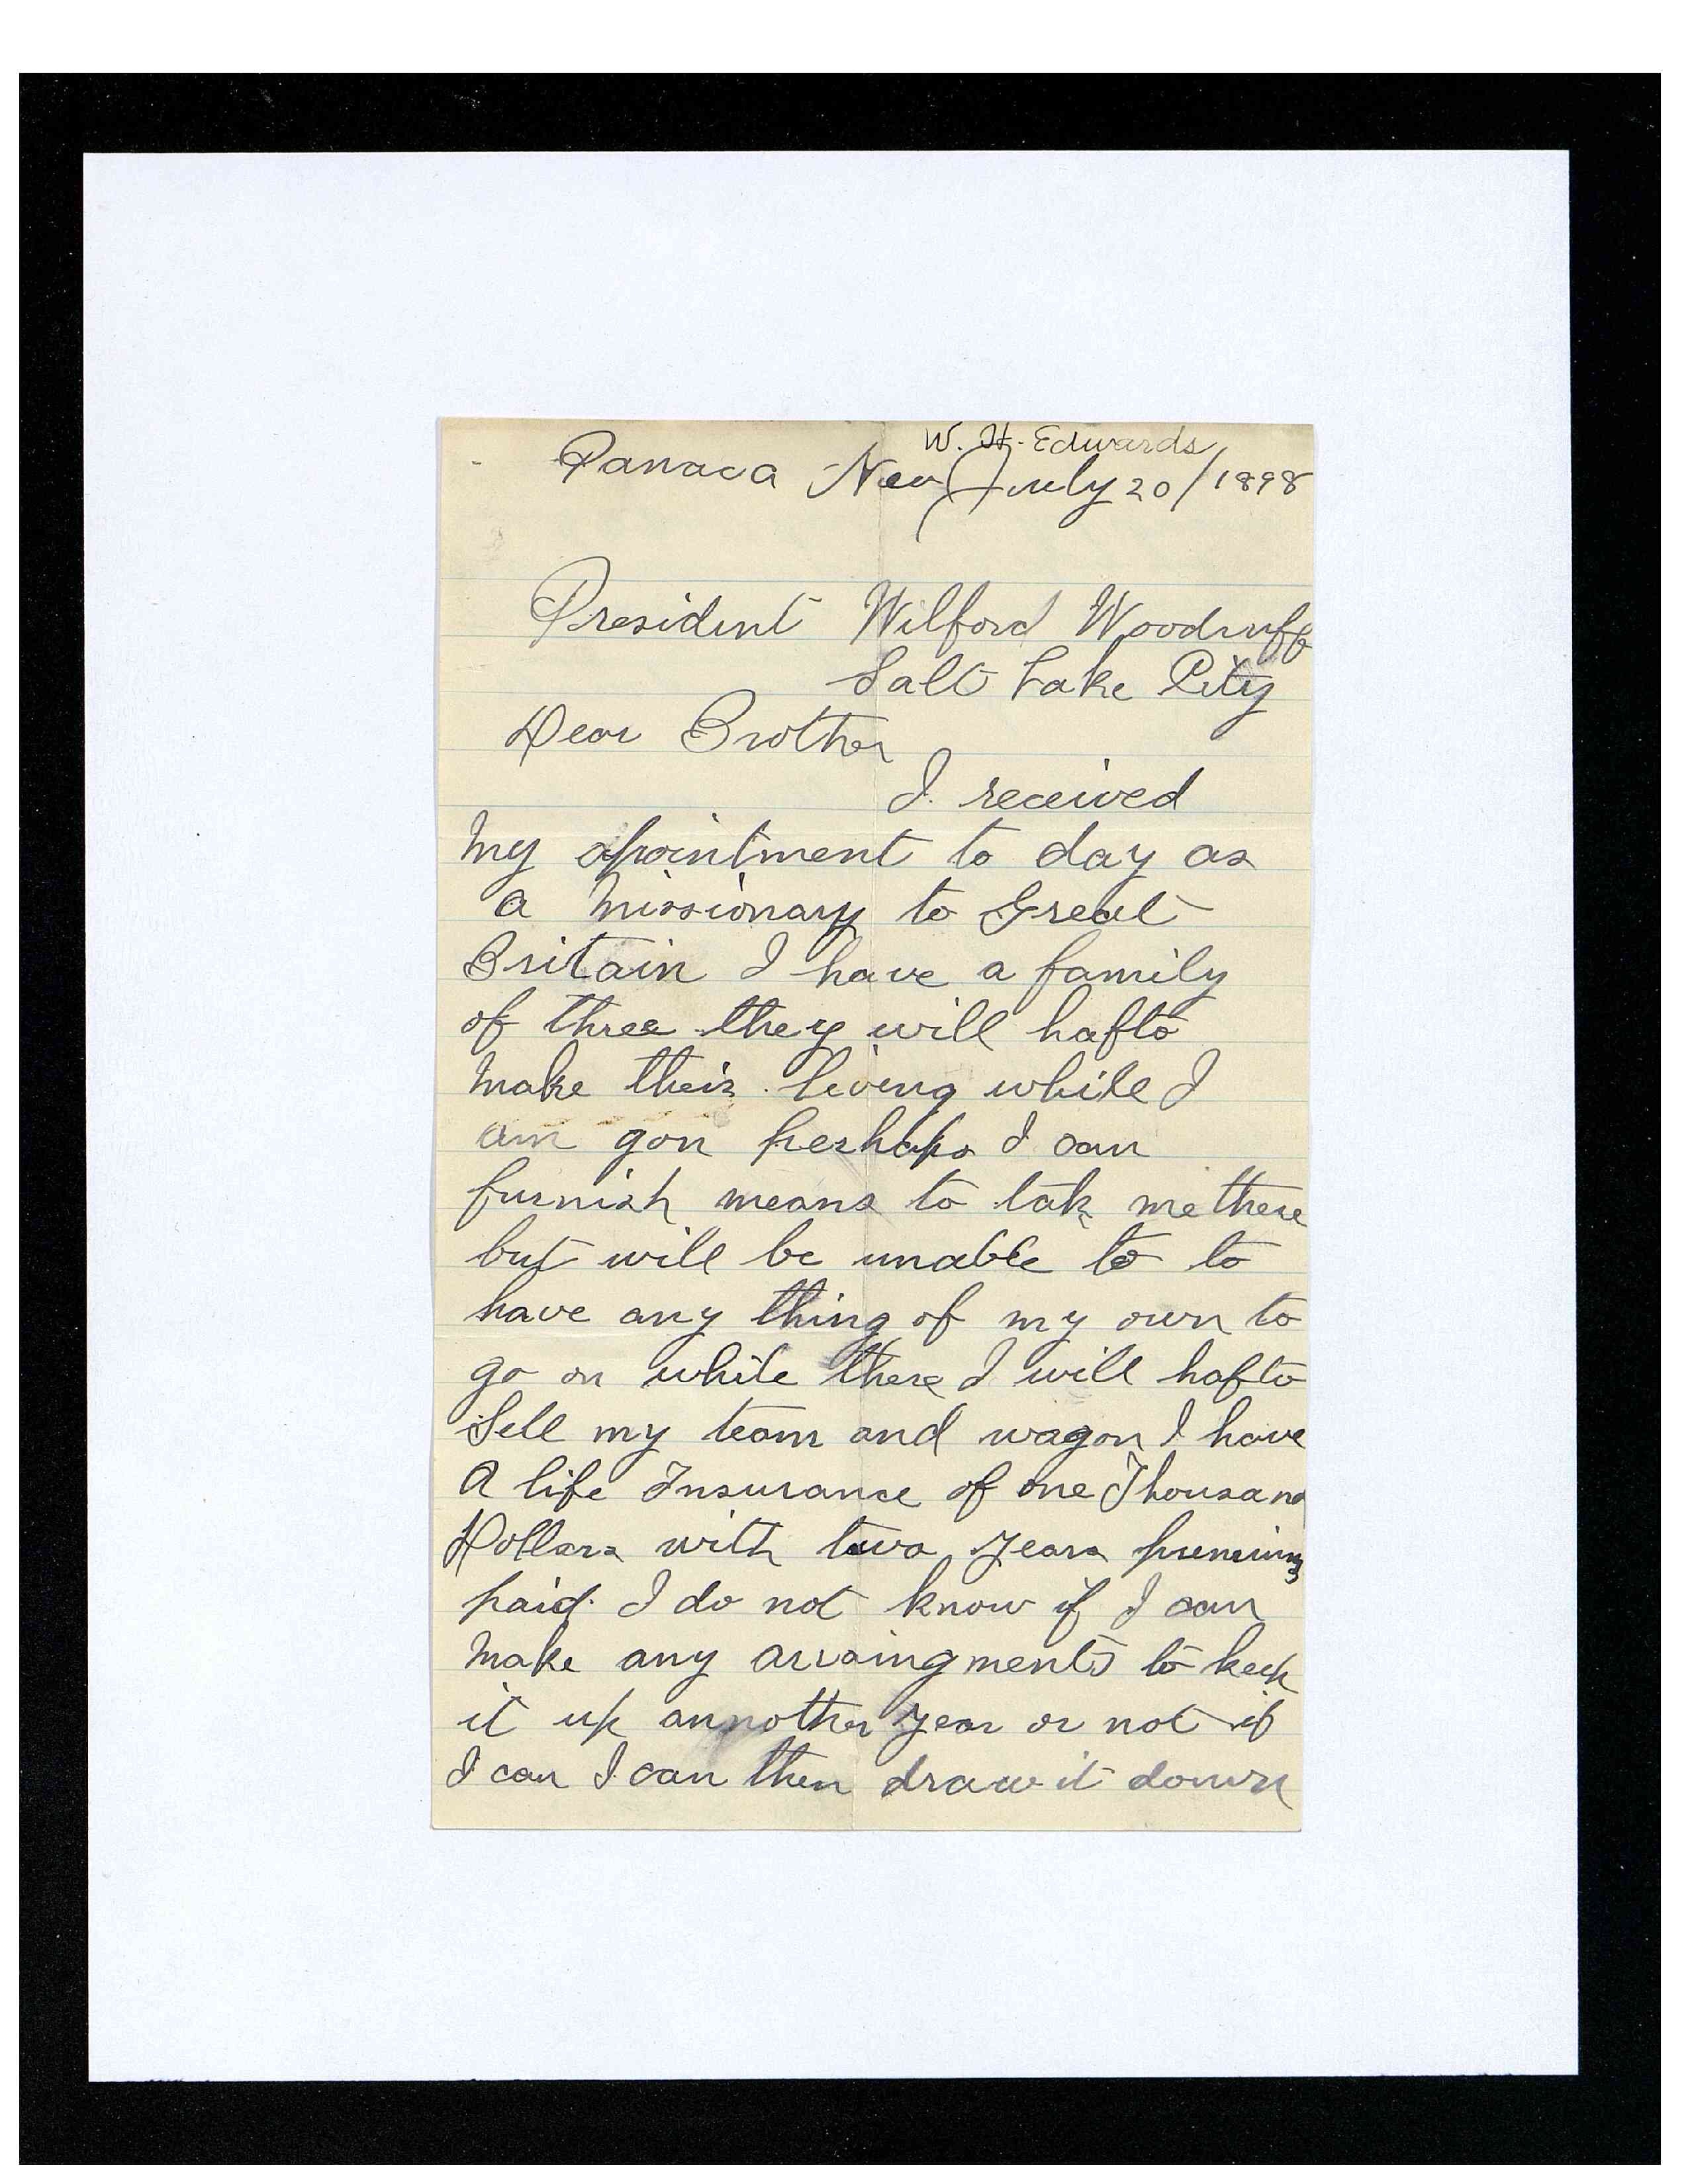 W. H. Edwards
Panaca Nev July 20/1898
President Wilford Woodruff
Salt Lake City
Dear Brother
I received
my apointment to day as
a missionary to Great
Britain I have a family
of three they will hafto
make their living while I
am gon perhaps I can
furnish means to tak me there
but will be unable to to
have any thing of my own to
go on while there I will hafto
Sell my team and wagon I have
A life Insurance of one Thousand
Dollars with two years premium
paid. I do not know if I can
make any arraingments to keep
it up annother year or not if
I can I can then draw it down